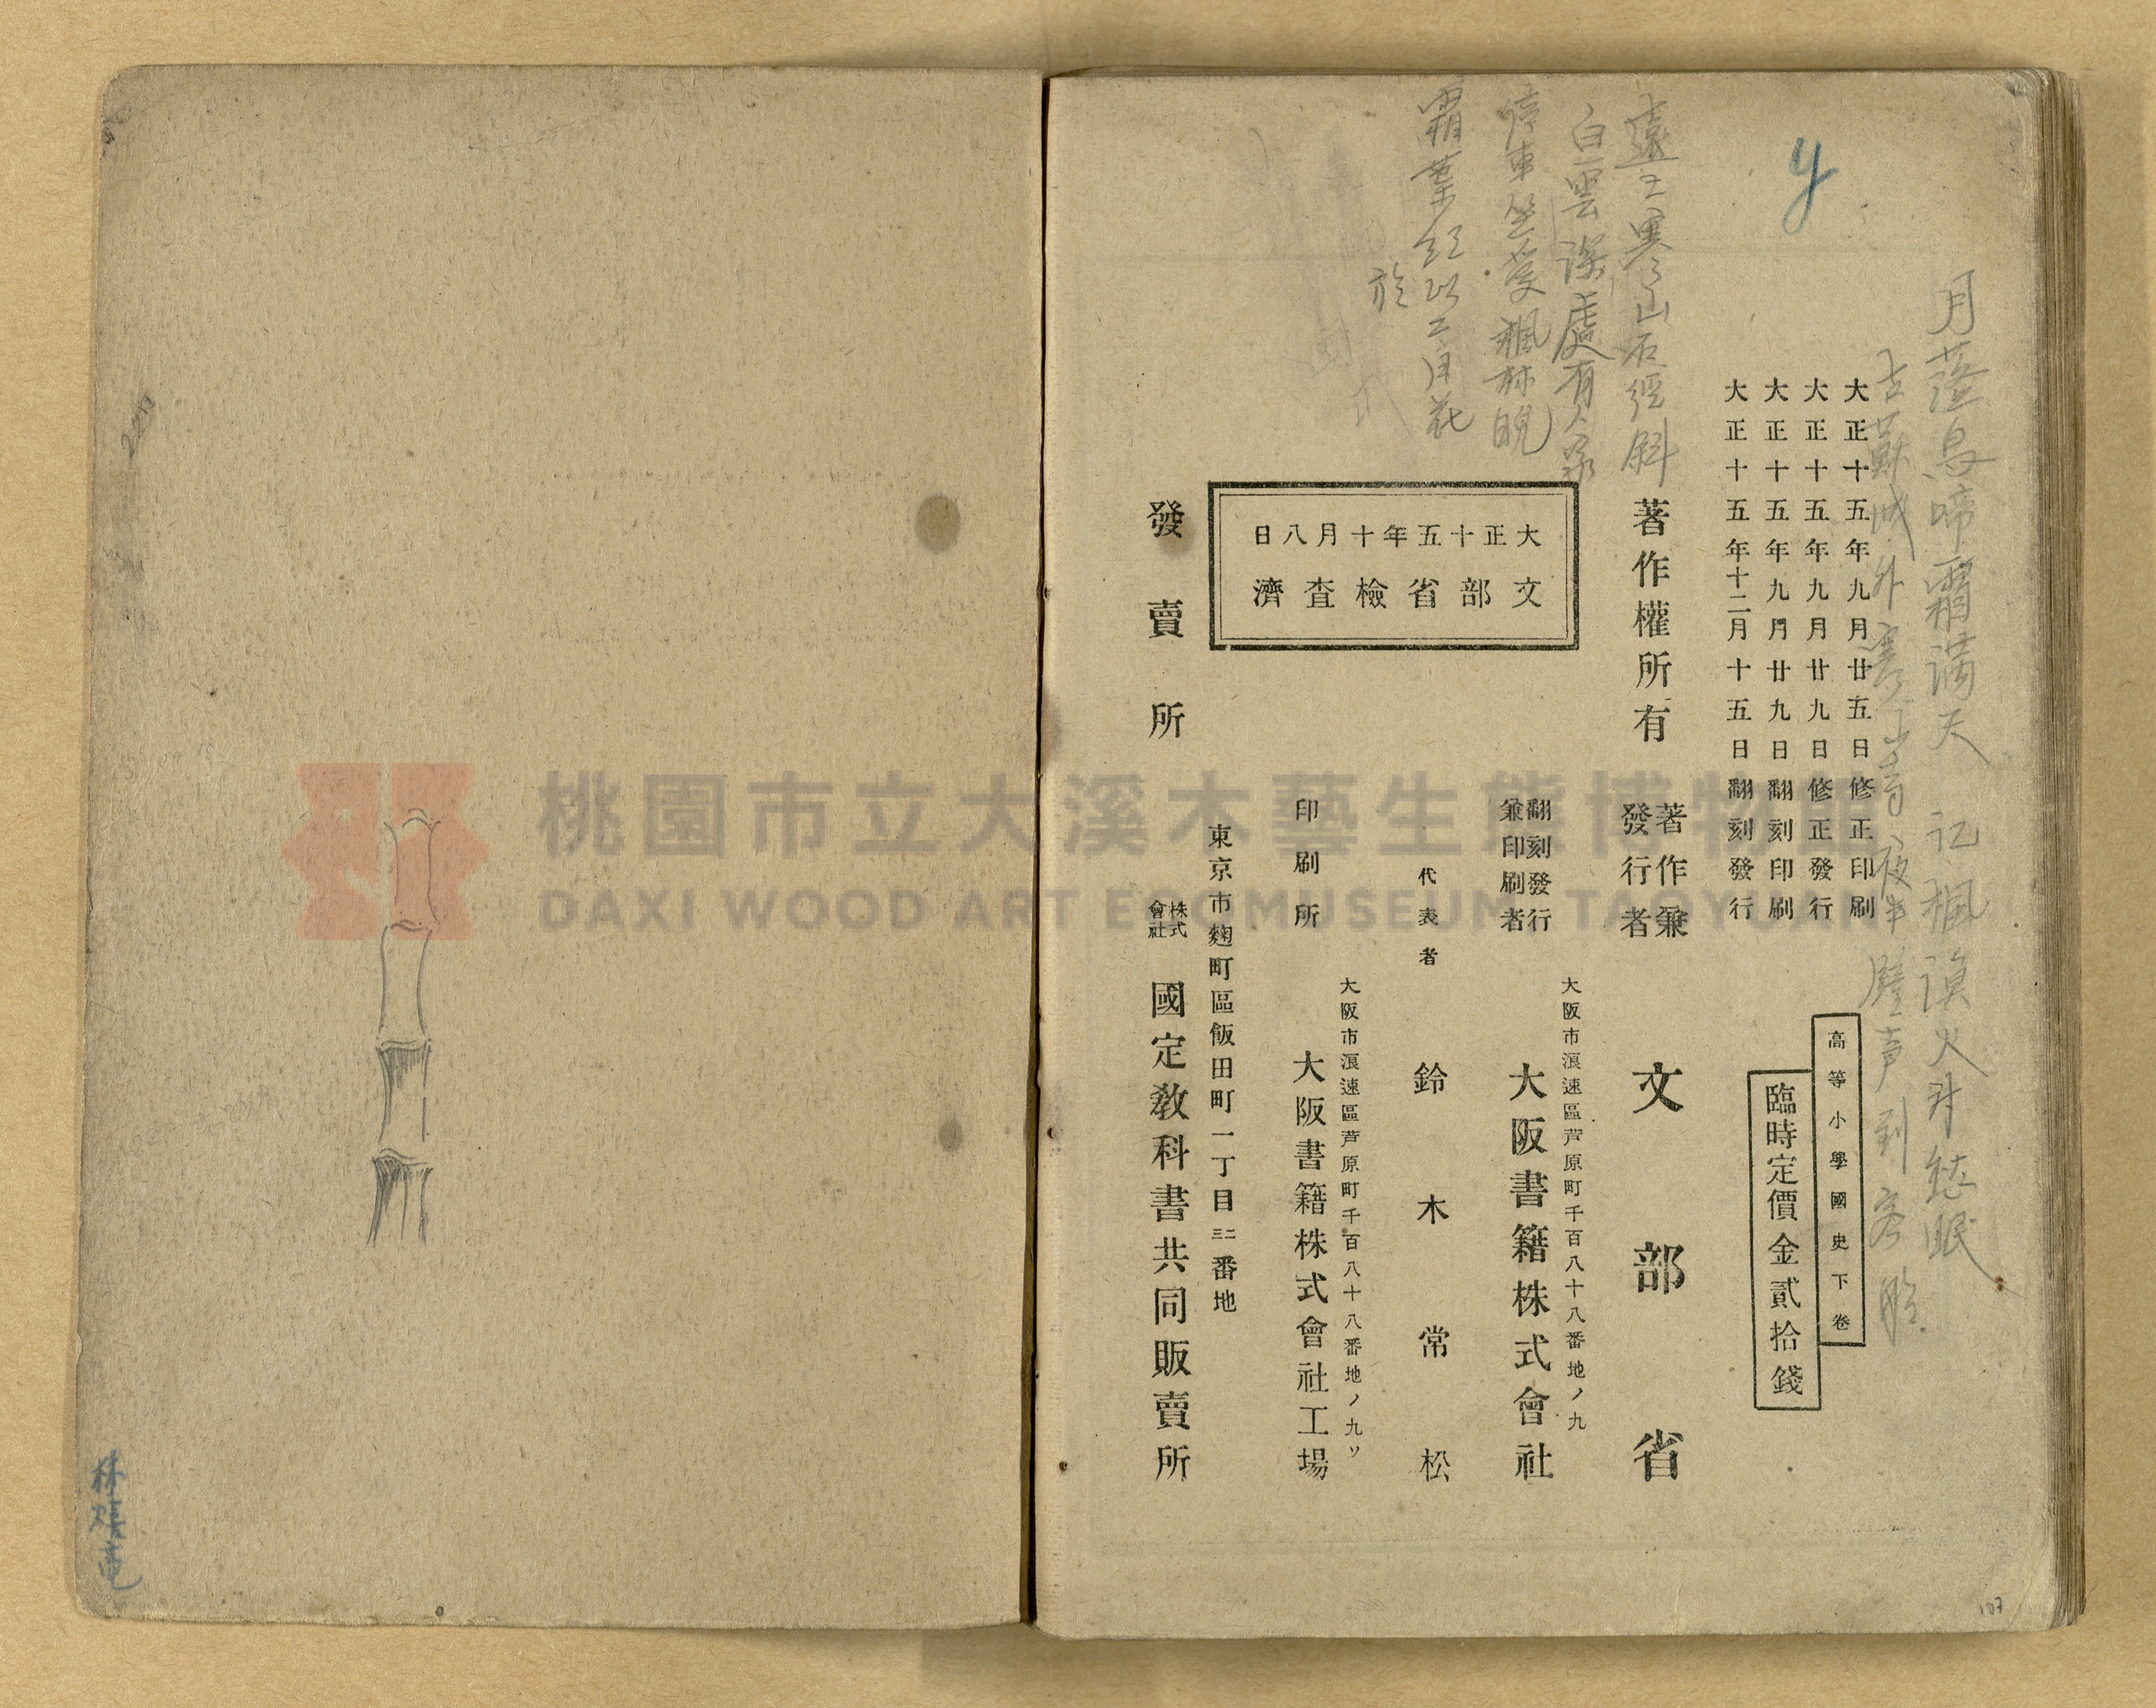 月落烏啼霜滿天 江楓漁火対愁眠
古蘇城外寒山寺 夜半鐘声到客船
y
大正十五年九月廿五日修正印刷
大正十五年九月廿九日修正發行
大正十五年九月廿九日翻刻印刷
大正十五年十二月十五日翻刻發行
高等小學國史下卷
臨時定價金貳拾錢
遠上寒山石徑斜
白雲深處有人家
停車坐愛楓林晚
霜葉紅
二月花
於
著作權所有
著作兼
發行者
文部省
大正十五年十月八日
文部省檢査濟
大阪市浪速區芦原町千百八十八番地ノ九
翻刻發行
兼印刷者
大阪書籍株式會社
代表者
鈴木常松
大阪市浪速區芦原町千百八十八番地ノ九ソ
印刷所
大阪書籍株式會社工場
東京市麴町區飯田町一丁目二三番地
發賣所
株式
會社
國定教科書共同販賣所
107
桃園市立大溪木藝生態博物館
DAXI WOOD ART ECOMUSEUM TAOYUAN